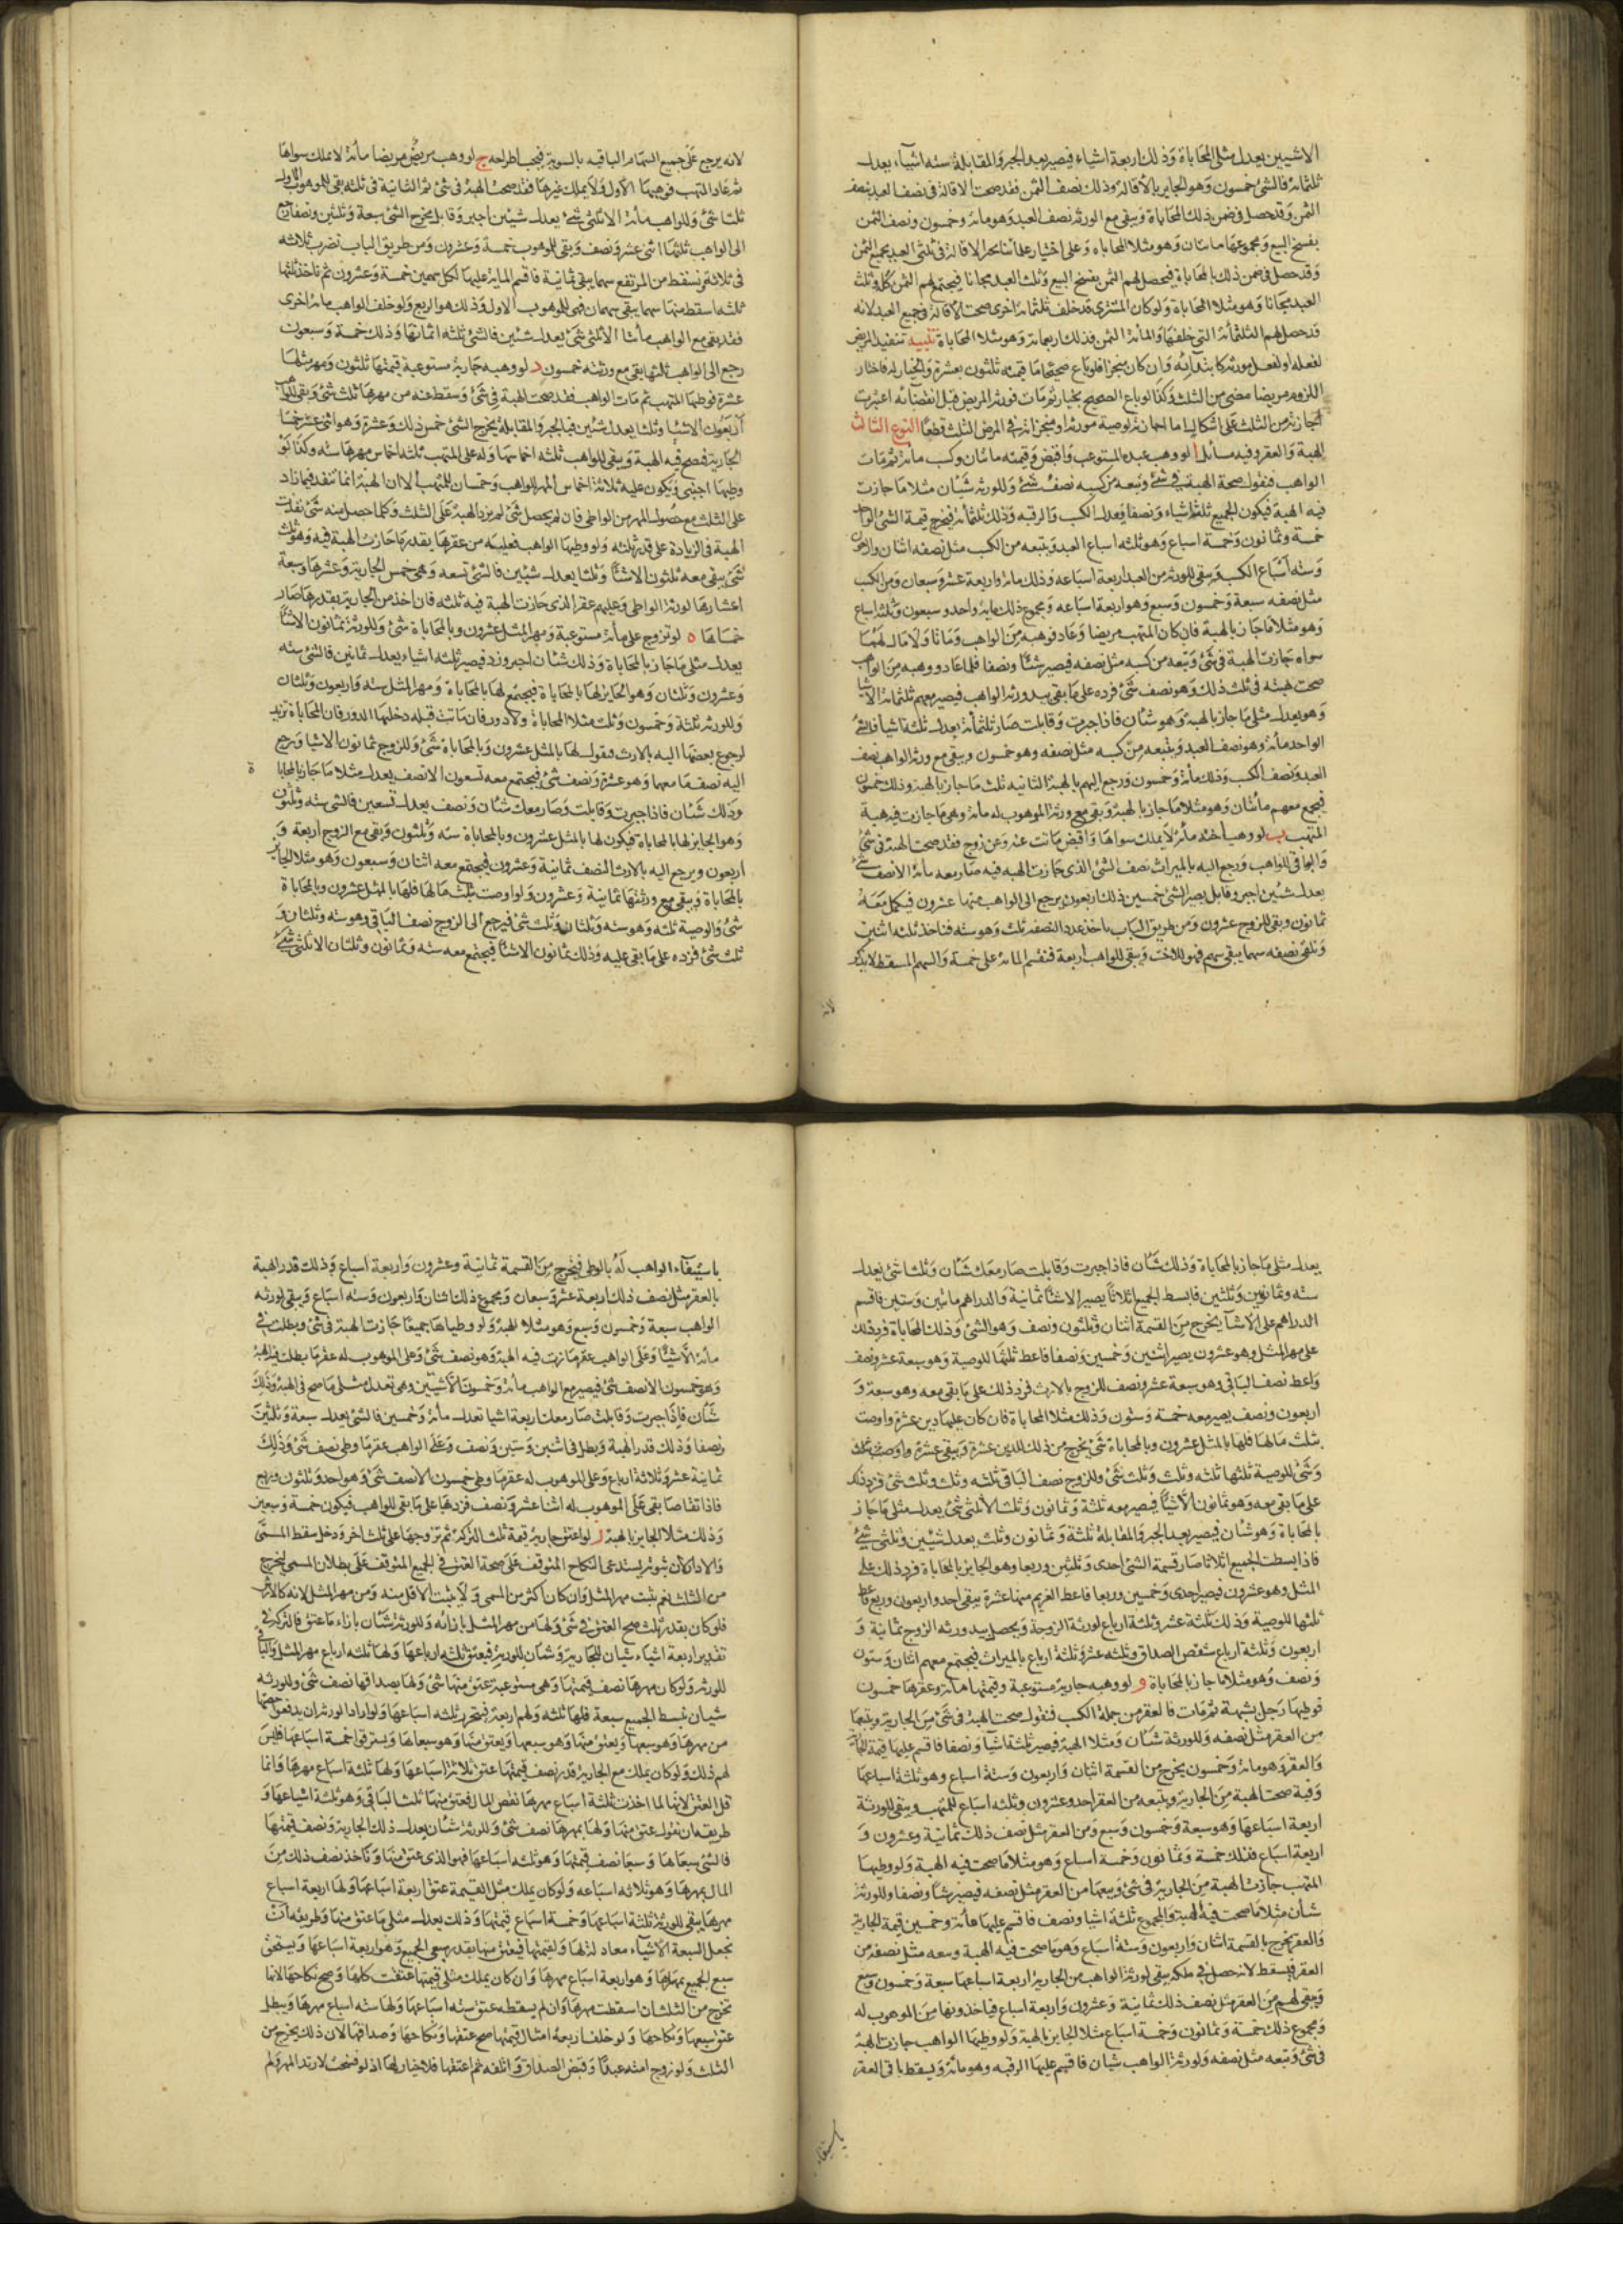 الاشيئين يعدل مثلى المحاباة وذلك اربعة اشياء فيصير بعد الجبر والمقابلة ستة اشياء يعدل
ثلثمائة فالشئ خمسون وهو الجايز بالاقالة وذلك نصف الثمن فقد صحت الاقالة فى نصف العبد بنصف
الثمن وقد حصل فى ضمن ذلك المحاباة ويبقى مع الورثة نصف العبد وهو مائة وخمسون ونصف الثمن
بفسخ البيع ومجموعها مائتان وهو مثلا المحاباة وعلى اختيار علمائنا يحرر الاقالة فى ثلثى العبد بجميع الثمن
وقد حصل فى ضمن ذلك بالمحاباة فيحصل لهم الثمن بفسخ البيع وثلث العبد مجانا فيجتمع لهم الثمن كلا وثلث
العبد مجانا وهو مثلا المحاباة ولو كان المشترى قد خلف ثلثمائة اخرى صحت الاقالة فى جميع العبد لانه
قد حصل لهم الثلثمائة التى خلفها والمائة الثمن فذلك اربعمائة وهو مثلا المحاباة تنبيه تنفيذ المريض
لفعله او لفعل مورثه كابتدائه وان كان منجزا فلو باع صحيحا ما قيمته ثلثون بعشرة والخيار له فاختار
اللزوم مريضا مضى من الثلث وكذا لو باع الصحيح بخيار ثم مات فورثه المريض قبل انقضائه اعتبرت
اجازته من الثلث على اشكال اما اجازته لوصية مورثه او منجزاته فى المرض الثلث قطعا النوع الثالث
الهبة والعقر وفيه مسائل ا لو وهب عبده المستوعب واقبض وقيمته مائتان وكسب مائة ثم مات
الواهب فنقول صحة الهبة فى شئ وتبعه من كسبه نصف شئ وللورثة شيئان مثلا ما جازت
فيه الهبة فيكون الجميع ثلثة اشياء ونصفا يعدل الكسب والرقبة وذلك ثلثمائة فيخرج قيمة الشئ الواحد
خمسة وثمانون وخمسة اسباع وهو ثلثة اسباع العبد ويتبعه من الكسب مثل نصفه اثنان واربعون
وستة اسباع الكسب ويبقى للورثة من العبد اربعة اسباعه وذلك مائة واربعة عشر وسبعان ومن الكسب
مثل نصفه سبعة وخمسون وسبع وهو اربعة اسباعه ومجموع ذلك مائة واحد وسبعون وثلثة اسباع
وهو مثلا ما جاز بالهبة فان كان المتهب مريضا وعاد فوهبه من الواهب وماتا ولا مال لهما
سواه جازت الهبة فى شئ وتبعه من كسبه مثل نصفه فيصير شيئا ونصفا فلما عاد ووهبه من الواهب
صحت هبته فى ثلث ذلك وهو نصف شئ فرده على ما بقى بيد ورثة الواهب فيصير معهم ثلثمائة الا شيئا
وهو يعدل مثلى ما جاز بالهبة وهو شيئان فاذا جبرت وقابلت صار ثلثمائة يعدل ثلثة اشيا فالشئ
الواحد مائة وهو نصف العبد ويتبعه من كسبه مثل نصفه وهو خمسون ويبقى مع ورثة الواهب نصف
العبد ونصف الكسب وذلك مائة وخمسون ورجع اليهم بالهبة الثانيه ثلث ما جاز بالهبة وذلك خمسون
فيجمع معهم مائتان وهو مثلا ما جاز بالهبة ويبقى مع ورثة الموهوب له مائة وهى ما جازت فيه هبة
المتهب ب لو وهب اخته مائة لا يملك سواها واقبض ماتت عنه وعن زوج فقد صحت الهبة فى شئ
والباقى للواهب ورجع اليه بالميراث نصف الشئ الذى جازت الهبة فيه صار معه مائة الا نصف شئ
يعدل شيئين اجبر وقابل يصير الشئ خمسين ذلك اربعون يرجع الى الواهب منها عشرون فيكمل معه
ثمانون وبقى للزوج عشرون ومن طريق الباب ياخذ عدد النصفه ثلث وهو ستة فناخذ ثلثه اثنين
ونلقى نصفه سهما يبقى سهم فهو للاخت ويبقى للواهب اربعة فنقسم المائة على خمسة والسهم المسقط لا يذكر
لانه
لانه يرجع على جميع السهام الباقيه بالسوية فيجب اطراحه ج لو وهب مريض مريضا مائة لا يملك سواها
ثم عاد المتهب فوهبها الاول ولا يملك غيرها فقد صحت الهبة فى شئ ثم الثانية فى ثلثه بقى للموهوب الاول
ثلثا شئ وللواهب مائة الا ثلثى شئ يعدل شيئين اجبر وقابل يخرج الشئ سبعة وثلثين ونصفا رجع
الى الواهب ثلثها اثنى عشر ونصف وبقى للموهوب خمسة وعشرون ومن طريق الباب نضرب ثلاثة
فى ثلاثة ونسقط من المرتفع سهما يبقى ثمانية فاقسم المائة عليها لكل سهمين خمسة وعشرون ثم ناخذ ثلثها
ثلثة اسقط منها سهما يبقى سهمان فهى للموهوب الاول وذلك هو الربع ولو خلف الواهب مائة اخرى
فقد بقى مع الواهب مائتا الا ثلثى شئ يعدل شيئين فالشئ ثلثة اثمانها وذلك خمسة وسبعون
رجع الى الواهب ثلثها بقى مع ورثته خمسون د لو وهبه جارية مستوعبة قيمتها ثلثون ومهر مثلها
عشرة فوطيها المتهب ثم مات الواهب فقد صحت الهبة فى شئ وسقط عنه من مهرها ثلث شئ وبقى للواهب
اربعون الا شيئا وثلثا يعدل شيئين فبالجبر والمقابلة يخرج الشئ خمس ذلك وعشره وهو اثنى عشر خمسا
الجارية فيصح فيه الهبة ويبقى للواهب ثلثة اخماسها وله على المتهب ثلثة اخماس مهرها ستة وكذا لو
وطيها اجنبى ويكون عليه ثلاثة اخماس المهر للواهب وخمسان للمتهب الا ان الهبة انما تنفذ فيما زاد
على الثلث مع حصول المهر من الواطى فان لم يحصل شئ لم يزد الهبة على الثلث وكلما حصل منه شئ نفذت
الهبة فى الزيادة على قدر ثلثه ولو وطيها الواهب فعليه من عقرها بقدر ما جازت الهبة فيه وهو ثلث
شئ يبقى معه ثلثون الا شيئا وثلثا يعدل شيئين فالشئ تسعه وهى خمس الجارية وعشرها وسبعة
اعشارها لورثة الواطى وعليهم عقر الذى جازت الهبة فيه ثلثه فان اخذ من الجارية بقدرها صار
خمساها ه لو تزوج على مائة مستوعبة ومهر المثل عشرون وبالمحاباة شئ وللورثة ثمانون الا شيئا
يعدل مثلى ما جاز بالمحاباة وذلك شيئان اجبر وزد فيصير ثلثة اشياء يعدل ثمانين فالشئ ستة
وعشرون وثلثان وهو الجايز لها بالمحاباة فيجتمع لها بالمحاباة ومهر المثل ستة واربعون وثلثان
وللورثة ثلثة وخمسون وثلث مثلا المحاباة ولا دور فان ماتت قبله دخلها الدور فان المحاباة تزيد
لرجوع بعضها اليه بالارث فنقول لها بالمثل عشرون وبالمحاباة شئ وللزوج ثمانون الا شيا ويرجع
اليه نصف ما معها وهو عشرة ونصف شئ فيجتمع معه تسعون الا نصف يعدل مثلا ما جاز بالمحاباة
وذلك شيئان فاذا جبرت وقابلت وصار معك شيئان ونصف يعدل تسعين فالشئ ستة وثلثون
وهو الجايز لها بالمحاباة فيكون لها بالمثل عشرون وبالمحاباة ستة وثلثون ويبقى مع الزوج اربعة و
اربعون ويرجع اليه بالارث النصف ثمانية وعشرون فيجتمع معه اثنان وسبعون وهو مثلا الجايز
بالمحاباة ويبقى مع ورثتها ثمانية وعشرون ولو اوصت بثلث مالها فلها بالمثل عشرون وبالمحاباة
شئ والوصية ثلثه وهو ستة وثلثان وثلث شئ فيرجع الى الزوج نصف الباقى وهو ستة وثلثان و
ثلث شئ فزده على ما بقى عليه وذلك ثمانون الا شيئا فيجتمع معه ستة وثمانون وثلثان الا ثلثى شئ
يعدل مثلى ما جاز بالمحاباة وذلك شيئان فاذا جبرت وقابلت صار معك شيئان وثلثا شئ يعدل
ستة وثمانين وثلثين فابسط الجميع اثلاثا يصير الاشيا ثمانية والدراهم مائتين وستين فاقسم
الدراهم على الاشيا يخرج من القسمة اثنان وثلثون ونصف وهو الشئ وذلك المحاباة فزد ذلك
على مهر المثل وهو عشرون يصير اثنين وخمسين ونصفا فاعط ثلثها للوصية وهو سبعة عشر ونصف
واعط نصف الباقى وهو سبعة عشر ونصف للزوج بالارث فزد ذلك على ما بقى معه وهو سبعة و
اربعون ونصف يصير معه خمسة وستون وذلك مثلا المحاباة فان كان عليها دين عشرة واوصت
بثلث مالها فلها بالمثل عشرون وبالمحاباة شئ يخرج من ذلك للدين عشرة ويبقى عشرة واوصت بثلث
وشئ للوصية ثلثها ثلثة وثلث وثلث شئ وللزوج نصف الباقى ثلثه وثلث وثلث شئ فزد ذلك
على ما بقى معه وهو ثمانون الا شيئا فيصير معه ثلثة وثمانون وثلث الا ثلثى شئ يعدل مثلى ما جاز
بالمحاباة وهو شيئان فيصير بعد الجبر والمقابلة ثلثة وثمانون وثلث يعدل شيئين وثلثى شئ
فاذا بسطت الجميع اثلاثا صار قيمة الشئ احدى وثلثين وربعا وهو الجايز بالمحاباة فزد ذلك على
المثل وهو عشرون فيصير احدى وخمسين وربعا فاعط الغريم منها عشرة يبقى احد واربعون وربع فاعط
ثلثها للوصية وذلك ثلثة عشر وثلثة ارباع لورثة الزوجة ويحصل بيد ورثة الزوج ثمانية و
اربعون وثلثة ارباع شقص الصداق وثلثة عشر وثلثة ارباع بالميراث فيجتمع معهم اثنان وستون
ونصف وهو مثلا ما جاز بالمحاباة و لو وهبه جارية مستوعبة وقيمتها مائة وعقرها خمسون
فوطيها رجل بشبهة ثم مات فالعقر من جملة الكسب فنقول صحت الهبة فى شئ من الجارية وتبعها
من العقر مثل نصفه وللورثة شيئان ومثلا الهبة فيصير ثلثة اشيا ونصفا فاقسم عليها قيمة الجارية
والعقر وهو مائة وخمسون يخرج من القسمة اثنان واربعون وستة اسباع وهو ثلثة اسباعها
وفيه صحت الهبة من الجارية ويتبعه من العقر احد وعشرون وثلثة اسباع للمتهب ويبقى للورثة
اربعة اسباعها وهو سبعة وخمسون وسبع ومن العقر مثل نصف ذلك ثمانية وعشرون و
اربعة اسباع فذلك خمسة وثمانون وخمسة اسباع وهو مثلا ما صحت فيه الهبة ولو وطيها
المتهب جازت الهبة من الجارية فى شئ ويتبعها من العقر مثل نصفه فيصير شيئا ونصفا وللورثة
شيئان مثلا ما صحت فيه الهبة والمجموع ثلثة اشيا ونصف فاقسم عليها مائة وخمسين قيمة الجارية
والعقر يخرج بالقسمة اثنان واربعون وستة اسباع وهو ما صحت فيه الهبة ومعه مثل نصفه من
العقر فيسقط لانه حصل فى ملكه يبقى لورثة الواهب من الجارية اربعة اسباعها سبعة وخمسون وسبع
ويبقى لهم من العقر مثل نصف ذلك ثمانية وعشرون واربعة اسباع فياخذونها من الموهوب له
ومجموع ذلك خمسة وثمانون وخمسة اسباع مثلا الجايز بالهبة ولو وطيها الواهب جازت الهبة
فى شئ وتبعه مثل نصفه ولورثة الواهب شيئان فاقسم عليها الرقبة وهو مائة ويسقط باقى العقر
باستيفاء
باستيفاء الواهب له بالوطى فيخرج من القسمة ثمانية وعشرون واربعة اسباع وذلك قدر الهبة
بالعقر مثل نصف ذلك اربعة عشر وسبعان ومجموع ذلك اثنان واربعون وستة اسباع ويبقى لورثة
الواهب سبعة وخمسون وسبع وهو مثلا الهبة ولو وطياها جميعا جازت الهبة فى شئ وبطلت فى
مائة الا شيئا وعلى الواهب عقر ما جازت فيه الهبة وهو نصف شئ وعلى الموهوب له عقر ما بطلت فيه الهبة
وهو خمسون الا نصف شئ فيصير مع الواهب مائة وخمسون الا شيئين وهى تعدل مثلى ما صح فى الهبة وذلك
شيئان فاذا جبرت وقابلت صار معك اربعة اشيا تعدل مائة وخمسين فالشئ يعدل سبعة وثلثين
ونصفا وذلك قدر الهبة وبطل فى اثنين وستين ونصف وعلى الواهب عقر ما وطى نصف شئ وذلك
ثمانية عشر وثلاثة ارباع وعلى الموهوب له عقر ما وطى خمسون الا نصف شئ وهو احد وثلثون وربع
فاذا تقاصا بقى على الموهوب له اثنا عشر ونصف فزدها على ما بقى للواهب فيكون خمسة وسبعين
وذلك مثلا الجايز بالهبة ز لو اعتق جارية قيمتها ثلث التركة ثم تزوجها على ثلث اخر ودخل سقط المسمى
والا دار لان ثبوته يستدعى النكاح المتوقف على صحة العتق فى الجميع المتوقف على بطلان المسمى ليخرج
من الثلث نعم يثبت مهر المثل وان كان اكثر من المسمى ولا يثبت الاقل منه ومن مهر المثل لانه كالارش
فلو كان بقدر ثلث صح العتق فى شئ ولها من مهر المثل بازائه وللورثة شيئان بازاء ما عتق فالتركة فى
تقدير اربعة اشياء شيئان للجارية وشيئان للورثة فيعتق ثلثة ارباعها ولها ثلثة ارباع مهر المثل والباقى
للورثة ولو كان مهرها نصف قيمتها وهى مستوعبة عتق منها شئ ولها بصداقها نصف شئ وللورثة
شيئان نبسط الجميع سبعة فلها ثلثة ولهم اربعة فيتحرر ثلثة اسباعها ولو اراد الورثة ان يدفعوا حصتها
من مهرها وهو سبعها ويعتق منها وهو سبعاها ويسترقوا خمسة اسباعها فليس
لهم ذلك ولو كان يملك مع الجارية قدر نصف قيمتها عتق ثلاثة اسباعها ولها ثلثة اسباع مهرها وانما
قل العتق لانها لما اخذت ثلثة اسباع مهرها نقص المال فعتق منها ثلث الباقى وهو ثلثة اسباعها و
طريقه ان نقول عتق منها ولها بمهرها نصف شئ وللورثة شيئان يعدل ذلك الجارية ونصف قيمتها
فالشئ سبعاها وسبعا نصف قيمتها وهو ثلثة اسباعها فهو الذى عتق منها وتاخذ نصف ذلك من
المال بمهرها وهو ثلاثة اسباعه ولو كان يملك مثل القيمة عتق اربعة اسباعها ولها اربعة اسباع
مهرها يبقى للورثة ثلثة اسباعها وخمسة اسباع قيمتها وذلك يعدل مثلى ما عتق منها وطريقه ان
تجعل السبعة الاشياء معادلة لها ولقيمتها فيعتق منها بقدر سبعى الجميع وهو اربعة اسباعها ويستحق
سبع الجميع بمهرها وهو اربعة اسباع مهرها وان كان يملك مثلى قيمتها عتقت كلها وصح نكاحها لانها
تخرج من الثلث ان اسقطت مهرها وان لم يسقطه عتق ستة اسباعها ولها ستة اسباع مهرها ويبطل
عتق سبعها ونكاحها ولو خلف اربعة امثال قيمتها صح عتقها ونكاحها وصداقها لان ذلك يخرج من
الثلث ولو زوج امته عبدا وقبض الصداق واتلفه ثم اعتقها فلا خيار لها اذ لو فسخت لارتد المهر ولم